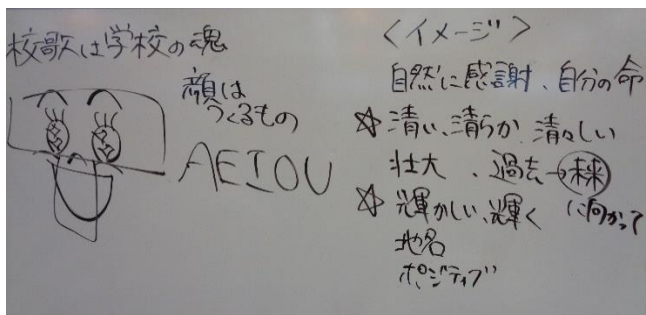 校歌は学校の魂
顔は
つくるもの
AEIOU
<イメージ>
自然に感謝、自分の命
☆清い、清らか、清々しい
壮大、過去→未来
に向かって
☆輝かしい、輝く
地名
ポジティブ